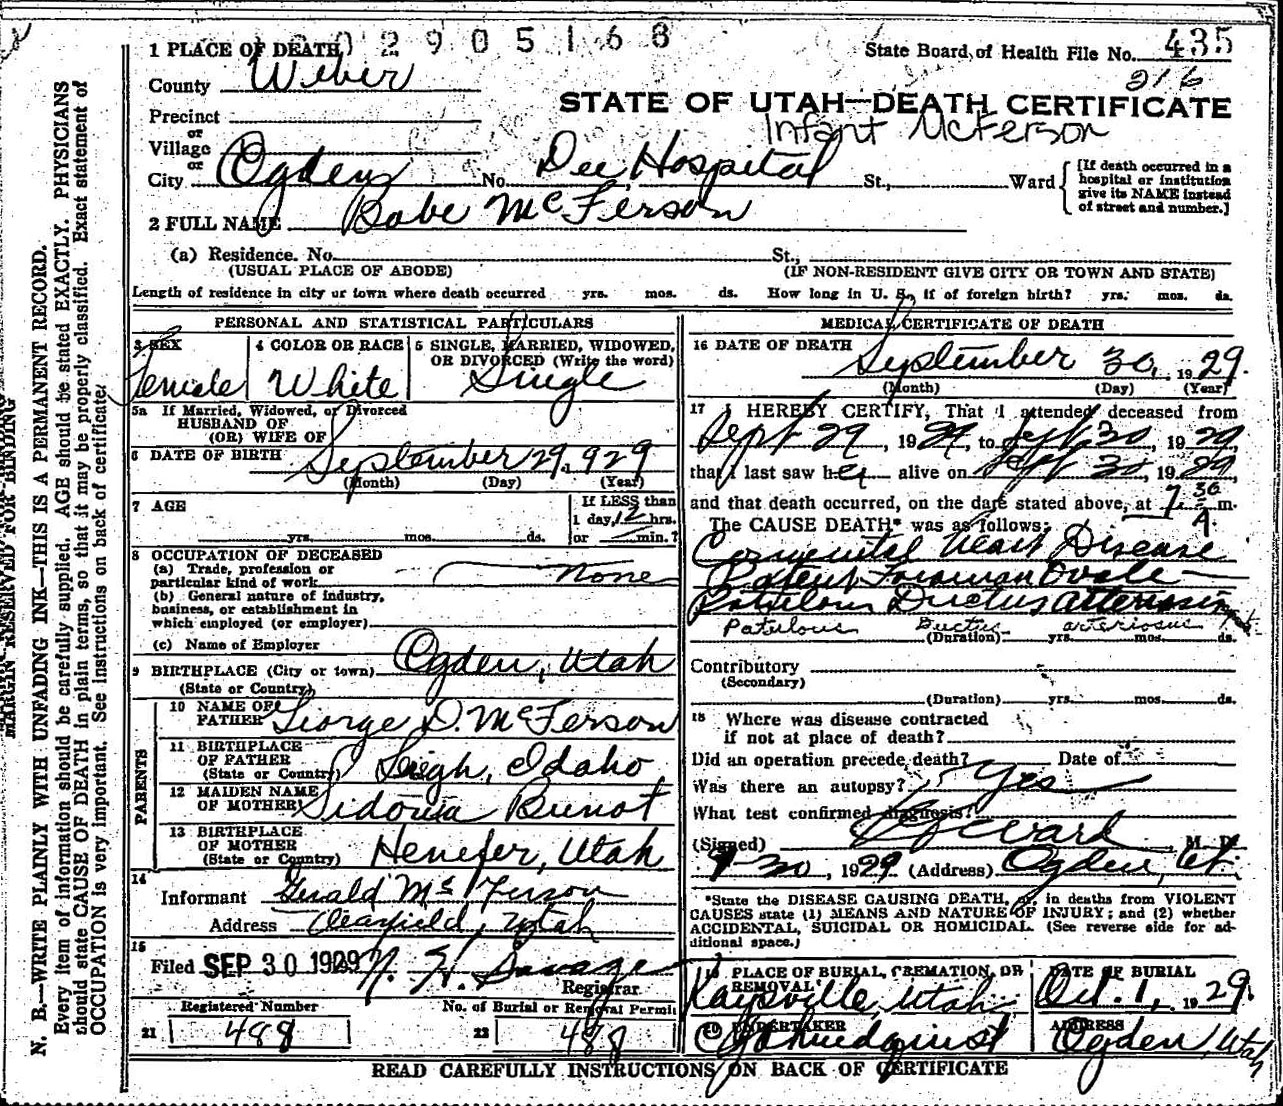 1 PLACE OF DEATH 0 2 9 0 5 1 6 8
State Board of Health File No. 435
County Weber
216
STATE OF UTAH—DEATH CERTIFICATE
Precinct
Infant McFerson
or
Village
or
City Ogden No. Dee Hospital St., Ward
[If death occurred in a
hospital or institution
give its NAME instead
of street and number.]
2 FULL NAME Babe McFerson
(a) Residence. No. St.,
(USUAL PLACE OF ABODE) (IF NON-RESIDENT GIVE CITY OR TOWN AND STATE)
Length of residence in city or town where death occurred yrs. mos. ds. How long in U. S., if of foreign birth? yrs. mos. ds.
PERSONAL AND STATISTICAL PARTICULARS
3 SEX
Female
4 COLOR OR RACE
White
5 SINGLE, MARRIED, WIDOWED,
OR DIVORCED (Write the word)
Single
5a If Married, Widowed, or Divorced
HUSBAND OF
(OR) WIFE OF
6 DATE OF BIRTH September 29, 929
(Month) (Day) (Year)
7 AGE
yrs. mos. ds.
If LESS than
1 day, 12 hrs.
or min.?
8 OCCUPATION OF DECEASED
(a) Trade, profession or
particular kind of work None
(b) General nature of industry,
business, or establishment in
which employed (or employer)
(c) Name of Employer
9 BIRTHPLACE (City or town) Ogden, Utah
(State or Country)
PARENTS
10 NAME OF
FATHER George D. McFerson
11 BIRTHPLACE
OF FATHER
(State or Country) Idaho
12 MAIDEN NAME
OF MOTHER Sidonia
13 BIRTHPLACE
OF MOTHER
(State or Country) Henefer, Utah
14
Informant Gerald McFerson
Address Clearfield, Utah
15
Filed SEP 30 1929 N. H. Savage
Registrar
Registered Number No. of Burial or Removal Permit
21 488 22 488
MEDICAL CERTIFICATE OF DEATH
16 DATE OF DEATH September 30, 1929.
(Month) (Day) (Year)
17 I HEREBY CERTIFY, That I attended deceased from
Sept 29, 1929, to Sept. 30, 1929,
that I last saw her alive on Sept 30, 1929,
and that death occurred, on the date stated above, at 7 30 A. m.
The CAUSE DEATH* was as follows:
Congenital Heart Disease
Patent Foraman Ovale
Patulous Ductus Arteriosus
Patulous Ductus arteriosus
(Duration) yrs. mos. ds.
Contributory
(Secondary)
(Duration) yrs. mos. ds.
18 Where was disease contracted
if not at place of death?
Did an operation precede death? Date of
Was there an autopsy? Yes
What test confirmed diagnosis?
(Signed) Ward M. D.
9-30, 1929 (Address) Ogden, Ut.
*State the DISEASE CAUSING DEATH, or, in deaths from VIOLENT
CAUSES state (1) MEANS AND NATURE OF INJURY; and (2) whether
ACCIDENTAL, SUICIDAL OR HOMICIDAL. (See reverse side for ad-
ditional space.)
19 PLACE OF BURIAL, CREMATION, OR
REMOVAL
Kaysville, Utah
DATE OF BURIAL
Oct. 1, 1929.
20 UNDERTAKER
ADDRESS
Ogden, Utah
READ CAREFULLY INSTRUCTIONS ON BACK OF CERTIFICATE
MARGIN RESERVED FOR BINDING
N. B.—WRITE PLAINLY WITH UNFADING INK—THIS IS A PERMANENT RECORD.
Every item of information should be carefully supplied. AGE should be stated EXACTLY. PHYSICIANS
should state CAUSE OF DEATH in plain terms, so that it may be properly classified. Exact statement of
OCCUPATION is very important. See instructions on back of certificate.